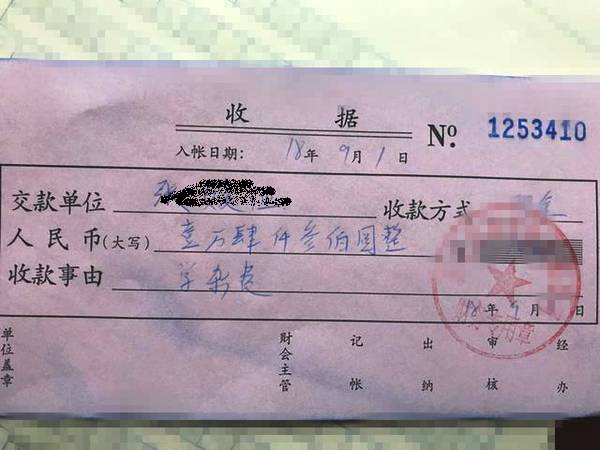 收据
No. 1253410
入帐日期： 18年9月1日
交款单位 收款方式
人民币(大写) 壹万肆仟叁佰圆整
收款事由 学杂费
18年9月 日
单位盖章 财会主管 记帐 出纳 审核 经办